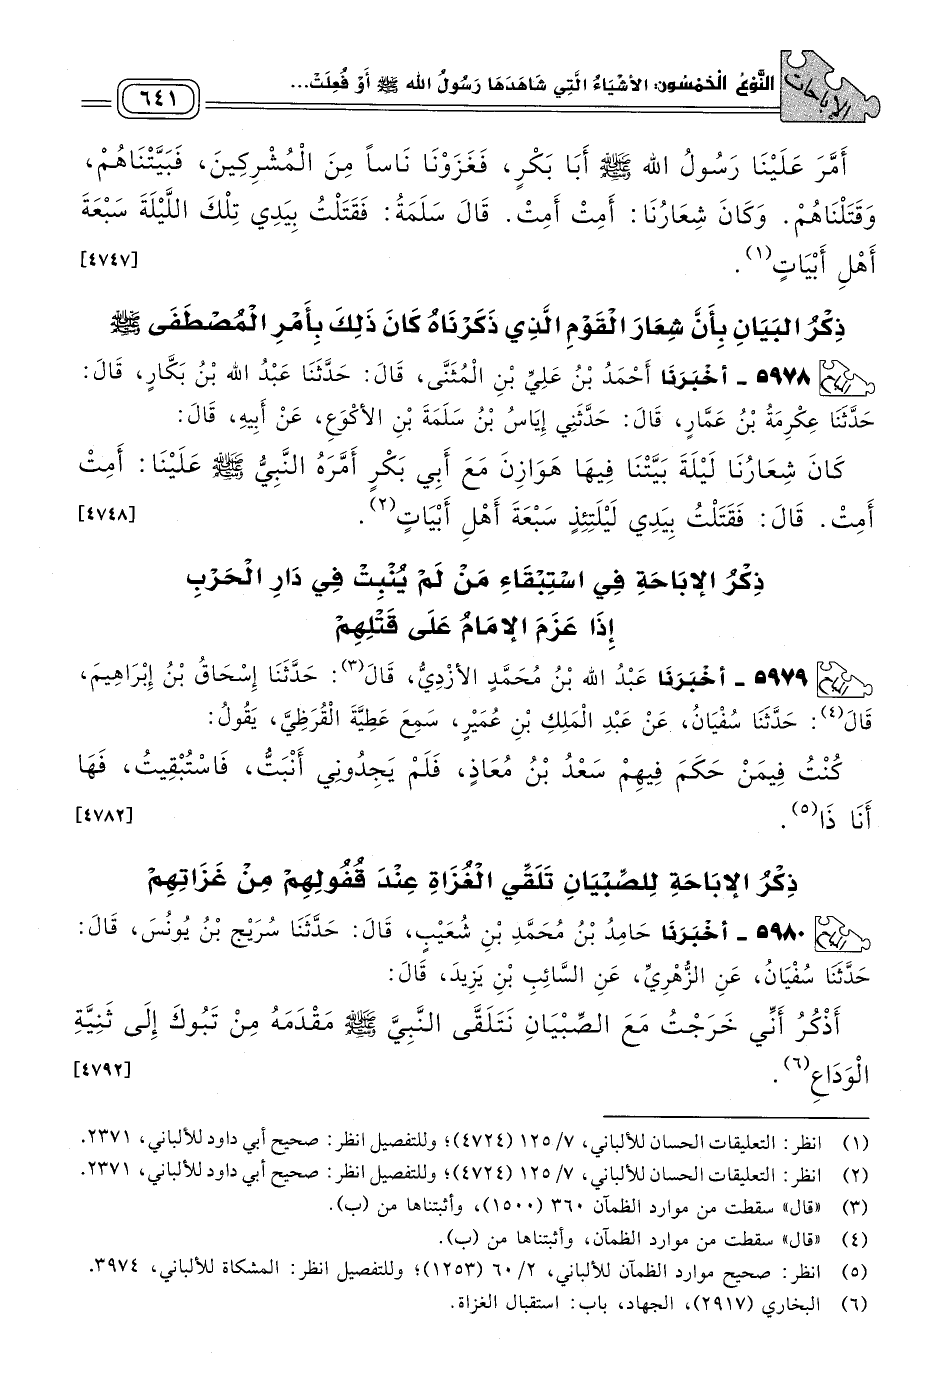 الإباحات
النَّوْعُ الْخَمْسُونَ: الأَشْيَاءُ الَّتِي شَاهَدَهَا رَسُولُ الله ﷺ أَوْ فُعِلَتْ...
٦٤١
أَمَّرَ عَلَيْنَا رَسُولُ الله ﷺ أَبَا بَكْرٍ، فَغَزَوْنَا نَاساً مِنَ الْمُشْرِكِينَ، فَبَيَّتْنَاهُمْ،
وَقَتَلْنَاهُمْ. وَكَانَ شِعَارُنَا: أَمِتْ أَمِتْ. قَالَ سَلَمَةُ: فَقَتَلْتُ بِيَدِي تِلْكَ اللَّيْلَةَ سَبْعَةَ
أَهْلِ أَبْيَاتٍ(١). [٤٧٤٧]
ذِكْرُ البَيَانِ بِأَنَّ شِعَارَ الْقَوْمِ الَّذِي ذَكَرْنَاهُ كَانَ ذَلِكَ بِأَمْرِ الْمُصْطَفَى ﷺ
٥٩٧٨ - أخْبَرَنَا أَحْمَدُ بْنُ عَلِيِّ بْنِ الْمُثَنَّى، قَالَ: حَدَّثَنَا عَبْدُ الله بْنُ بَكَّارٍ، قَالَ:
حَدَّثَنَا عِكْرِمَةُ بْنُ عَمَّارٍ، قَالَ: حَدَّثَنِي إِيَاسُ بْنُ سَلَمَةَ بْنِ الأَكْوَعِ، عَنْ أَبِيهِ، قَالَ:
كَانَ شِعَارُنَا لَيْلَةَ بَيَّتْنَا فِيهَا هَوَازِنَ مَعَ أَبِي بَكْرٍ أَمَّرَهُ النَّبِيُّ ﷺ عَلَيْنَا: أَمِتْ
أَمِتْ. قَالَ: فَقَتَلْتُ بِيَدِي لَيْلَتَئِذٍ سَبْعَةَ أَهْلِ أَبْيَاتٍ(٢). [٤٧٤٨]
ذِكْرُ الإِبَاحَةِ فِي اسْتِبْقَاءِ مَنْ لَمْ يُنْبِتْ فِي دَارِ الْحَرْبِ
إِذَا عَزَمَ الإِمَامُ عَلَى قَتْلِهِمْ
٥٩٧٩ - أخْبَرَنَا عَبْدُ الله بْنُ مُحَمَّدٍ الأَزْدِيُّ، قَالَ(٣): حَدَّثَنَا إِسْحَاقُ بْنُ إِبْرَاهِيمَ،
قَالَ(٤): حَدَّثَنَا سُفْيَانُ، عَنْ عَبْدِ الْمَلِكِ بْنِ عُمَيْرٍ، سَمِعَ عَطِيَّةَ الْقُرَظِيَّ، يَقُولُ:
كُنْتُ فِيمَنْ حَكَمَ فِيهِمْ سَعْدُ بْنُ مُعَاذٍ، فَلَمْ يَجِدُونِي أَنْبَتُّ، فَاسْتُبْقِيتُ، فَهَا
أَنَا ذَا(٥). [٤٧٨٢]
ذِكْرُ الإِبَاحَةِ لِلصِّبْيَانِ تَلَقِّي الْغُزَاةِ عِنْدَ قُفُولِهِمْ مِنْ غَزَاتِهِمْ
٥٩٨٠ - أخْبَرَنَا حَامِدُ بْنُ مُحَمَّدِ بْنِ شُعَيْبٍ، قَالَ: حَدَّثَنَا سُرَيْجُ بْنُ يُونُسَ، قَالَ:
حَدَّثَنَا سُفْيَانُ، عَنِ الزُّهْرِيِّ، عَنِ السَّائِبِ بْنِ يَزِيدَ، قَالَ:
أَذْكُرُ أَنِّي خَرَجْتُ مَعَ الصِّبْيَانِ نَتَلَقَّى النَّبِيَّ ﷺ مَقْدَمَهُ مِنْ تَبُوكَ إِلَى ثَنِيَّةِ
الْوَدَاعِ(٦). [٤٧٩٢]
(١) انظر: التعليقات الحسان للألباني، ٧/ ١٢٥ (٤٧٢٤)؛ وللتفصيل انظر: صحيح أبي داود للألباني، ٢٣٧١.
(٢) انظر: التعليقات الحسان للألباني، ٧/ ١٢٥ (٤٧٢٤)؛ وللتفصيل انظر: صحيح أبي داود للألباني، ٢٣٧١.
(٣) «قال» سقطت من موارد الظمآن ٣٦٠ (١٥٠٠)، وأثبتناها من (ب).
(٤) «قال» سقطت من موارد الظمآن، وأثبتناها من (ب).
(٥) انظر: صحيح موارد الظمآن للألباني، ٢/ ٦٠ (١٢٥٣)؛ وللتفصيل انظر: المشكاة للألباني، ٣٩٧٤.
(٦) البخاري (٢٩١٧)، الجهاد، باب: استقبال الغزاة.